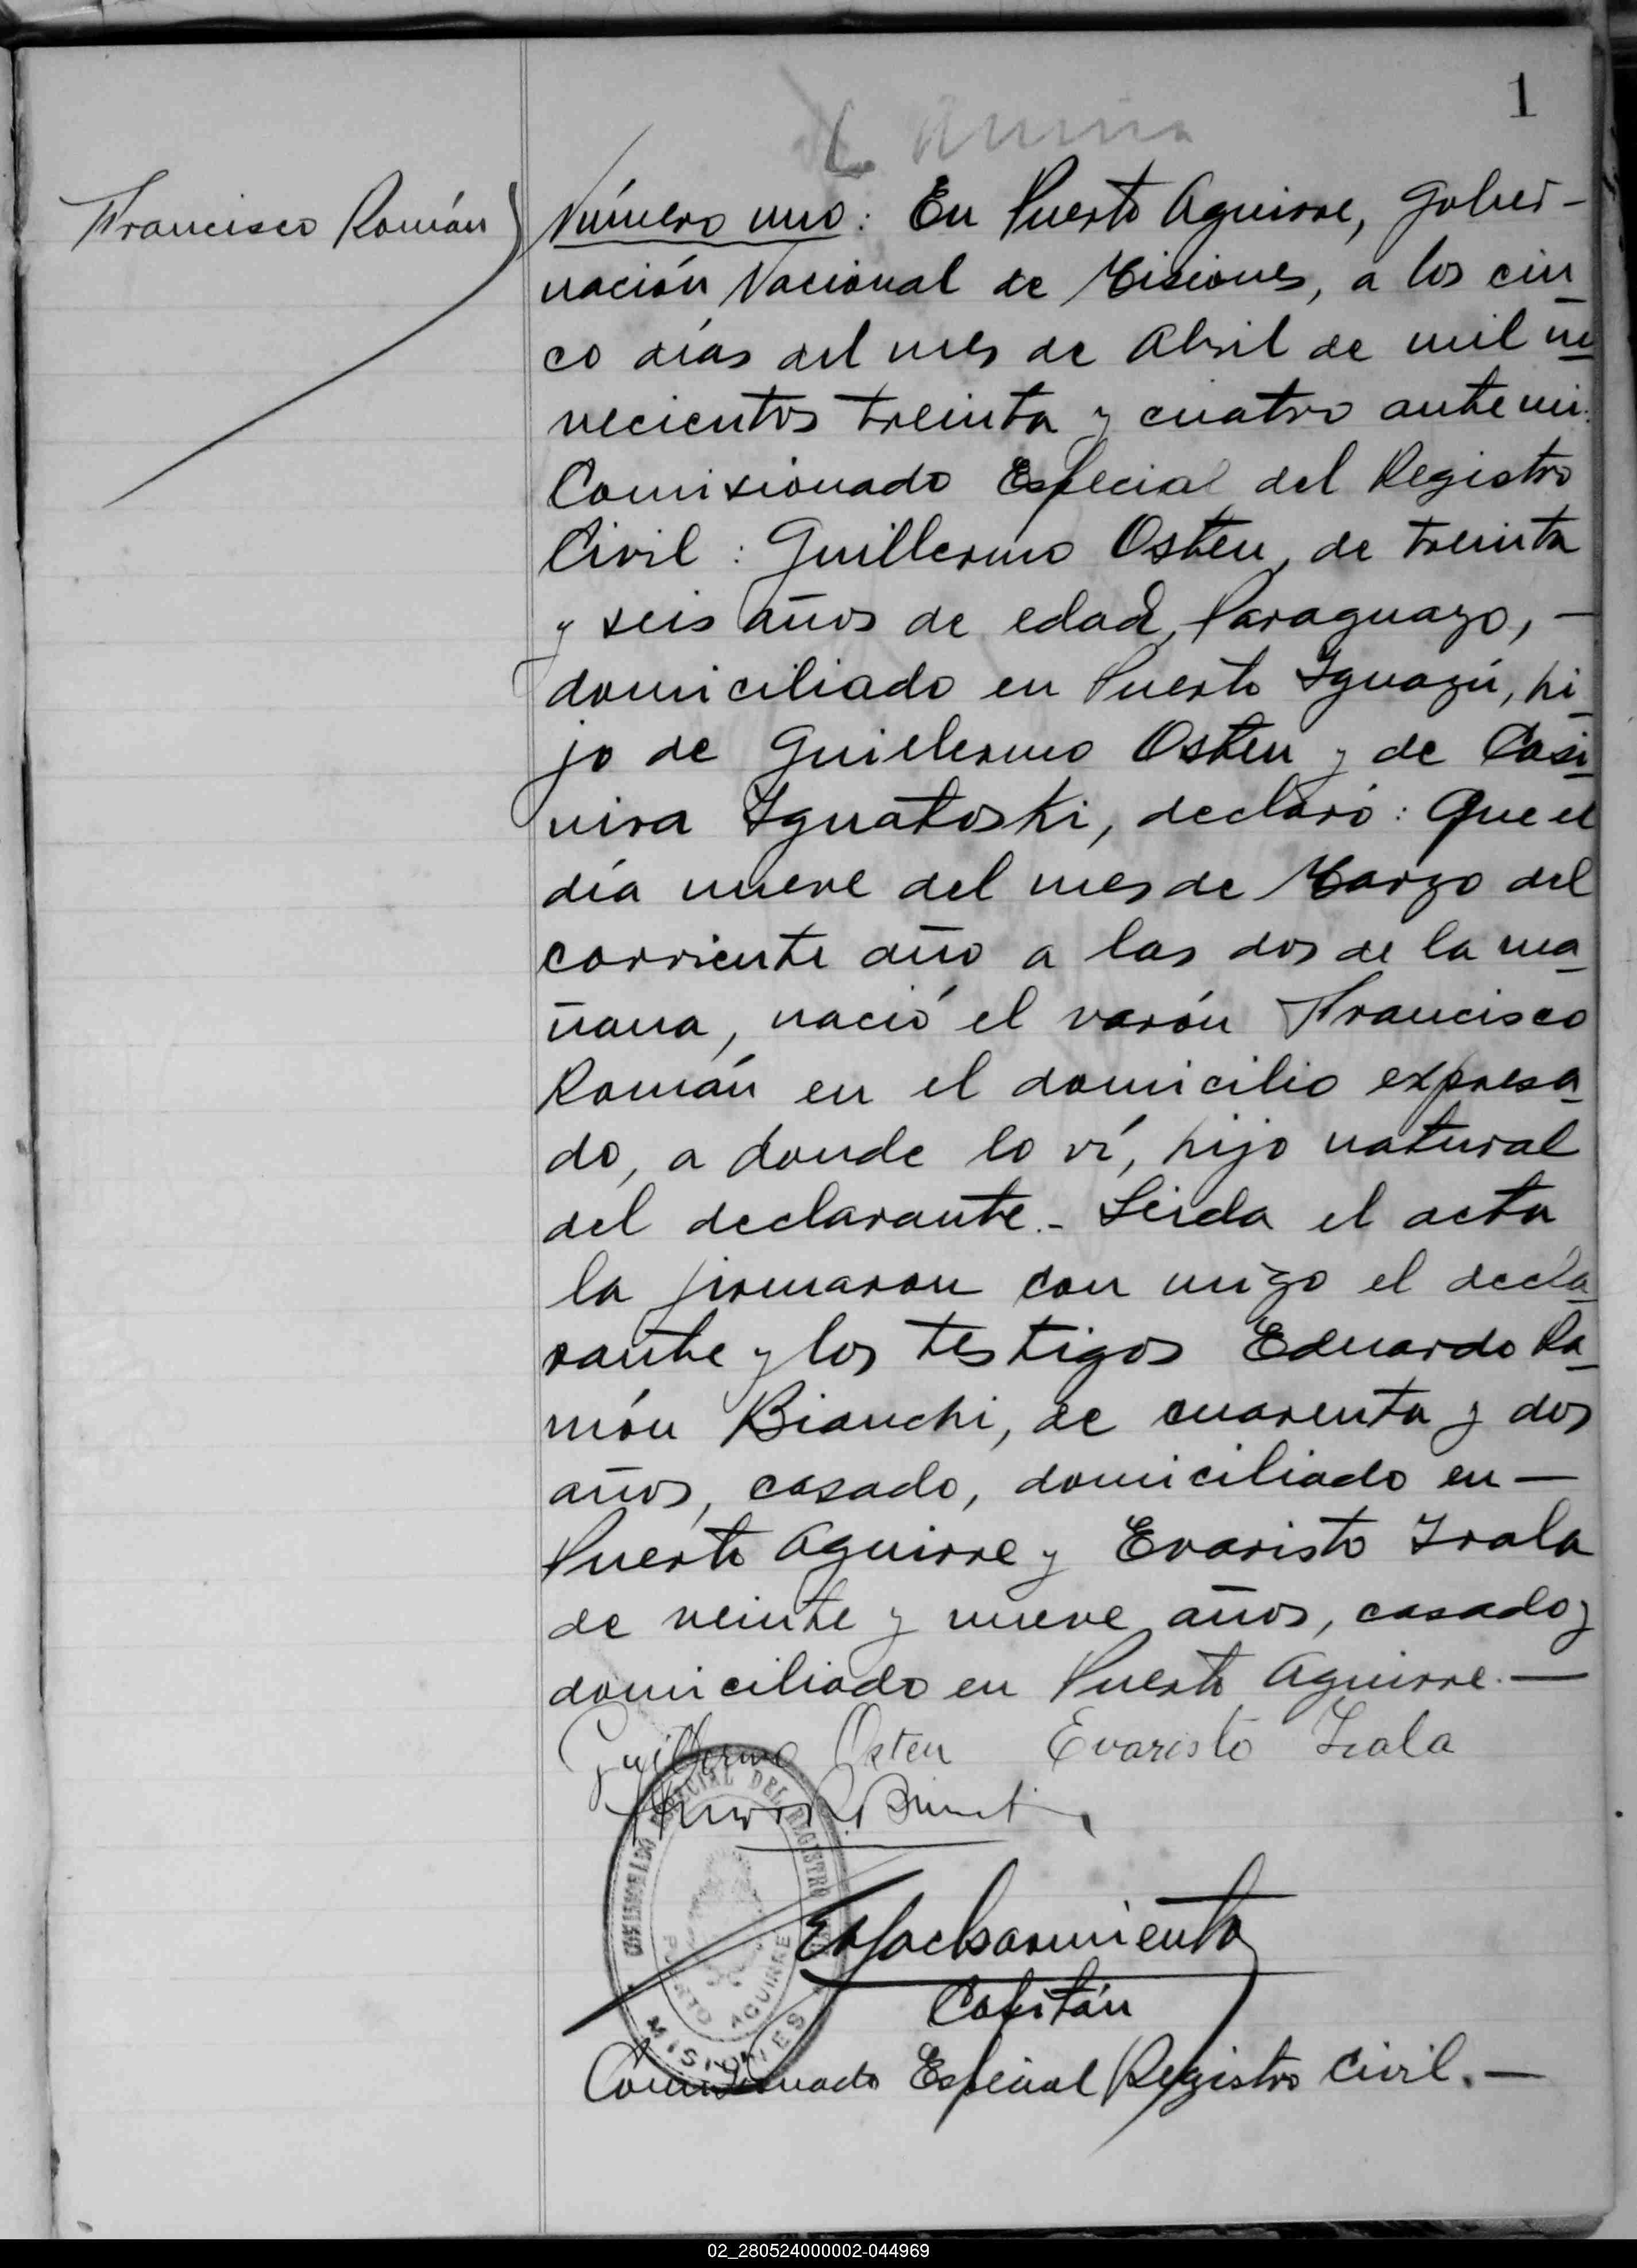 1
Francisco Román
Número uno: En Puerto Aguirre, Gober-
nación Nacional de Misiones, a los cin
co días del mes de Abril de mil no
vecientos treinta y cuatro ante mi
Comisionado Especial del Registro
Civil: Guillermo Osten, de treinta
y seis años de edad, Paraguayo, -
domiciliado en Puerto Iguazú, hi
jo de Guillermo Osten y de Casi
mira Ignatoski, declaró: Que el
día nueve del mes de Marzo del
corriente año a las dos de la ma
ñana, nació el varón Francisco
Román en el domicilio expresa
do, a donde lo ví, hijo natural
del declarante.- Leida el acta
la firmaron con migo el decla
rante y los testigos Eduardo Ra
món Bianchi, de cuarenta y dos
años, casado, domiciliado en -
Puerto Aguirre y Evaristo Irala
de veinte y nueve años, casado y
domiciliado en Puerto Aguirre. -
Guillermo Osten Evaristo Irala
COMISIONADO ESPECIAL DEL REGISTRO
PUERTO AGUIRRE
MISIONES
Capitán
Comisionado Especial Registro Civil. -
02_280524000002-044969